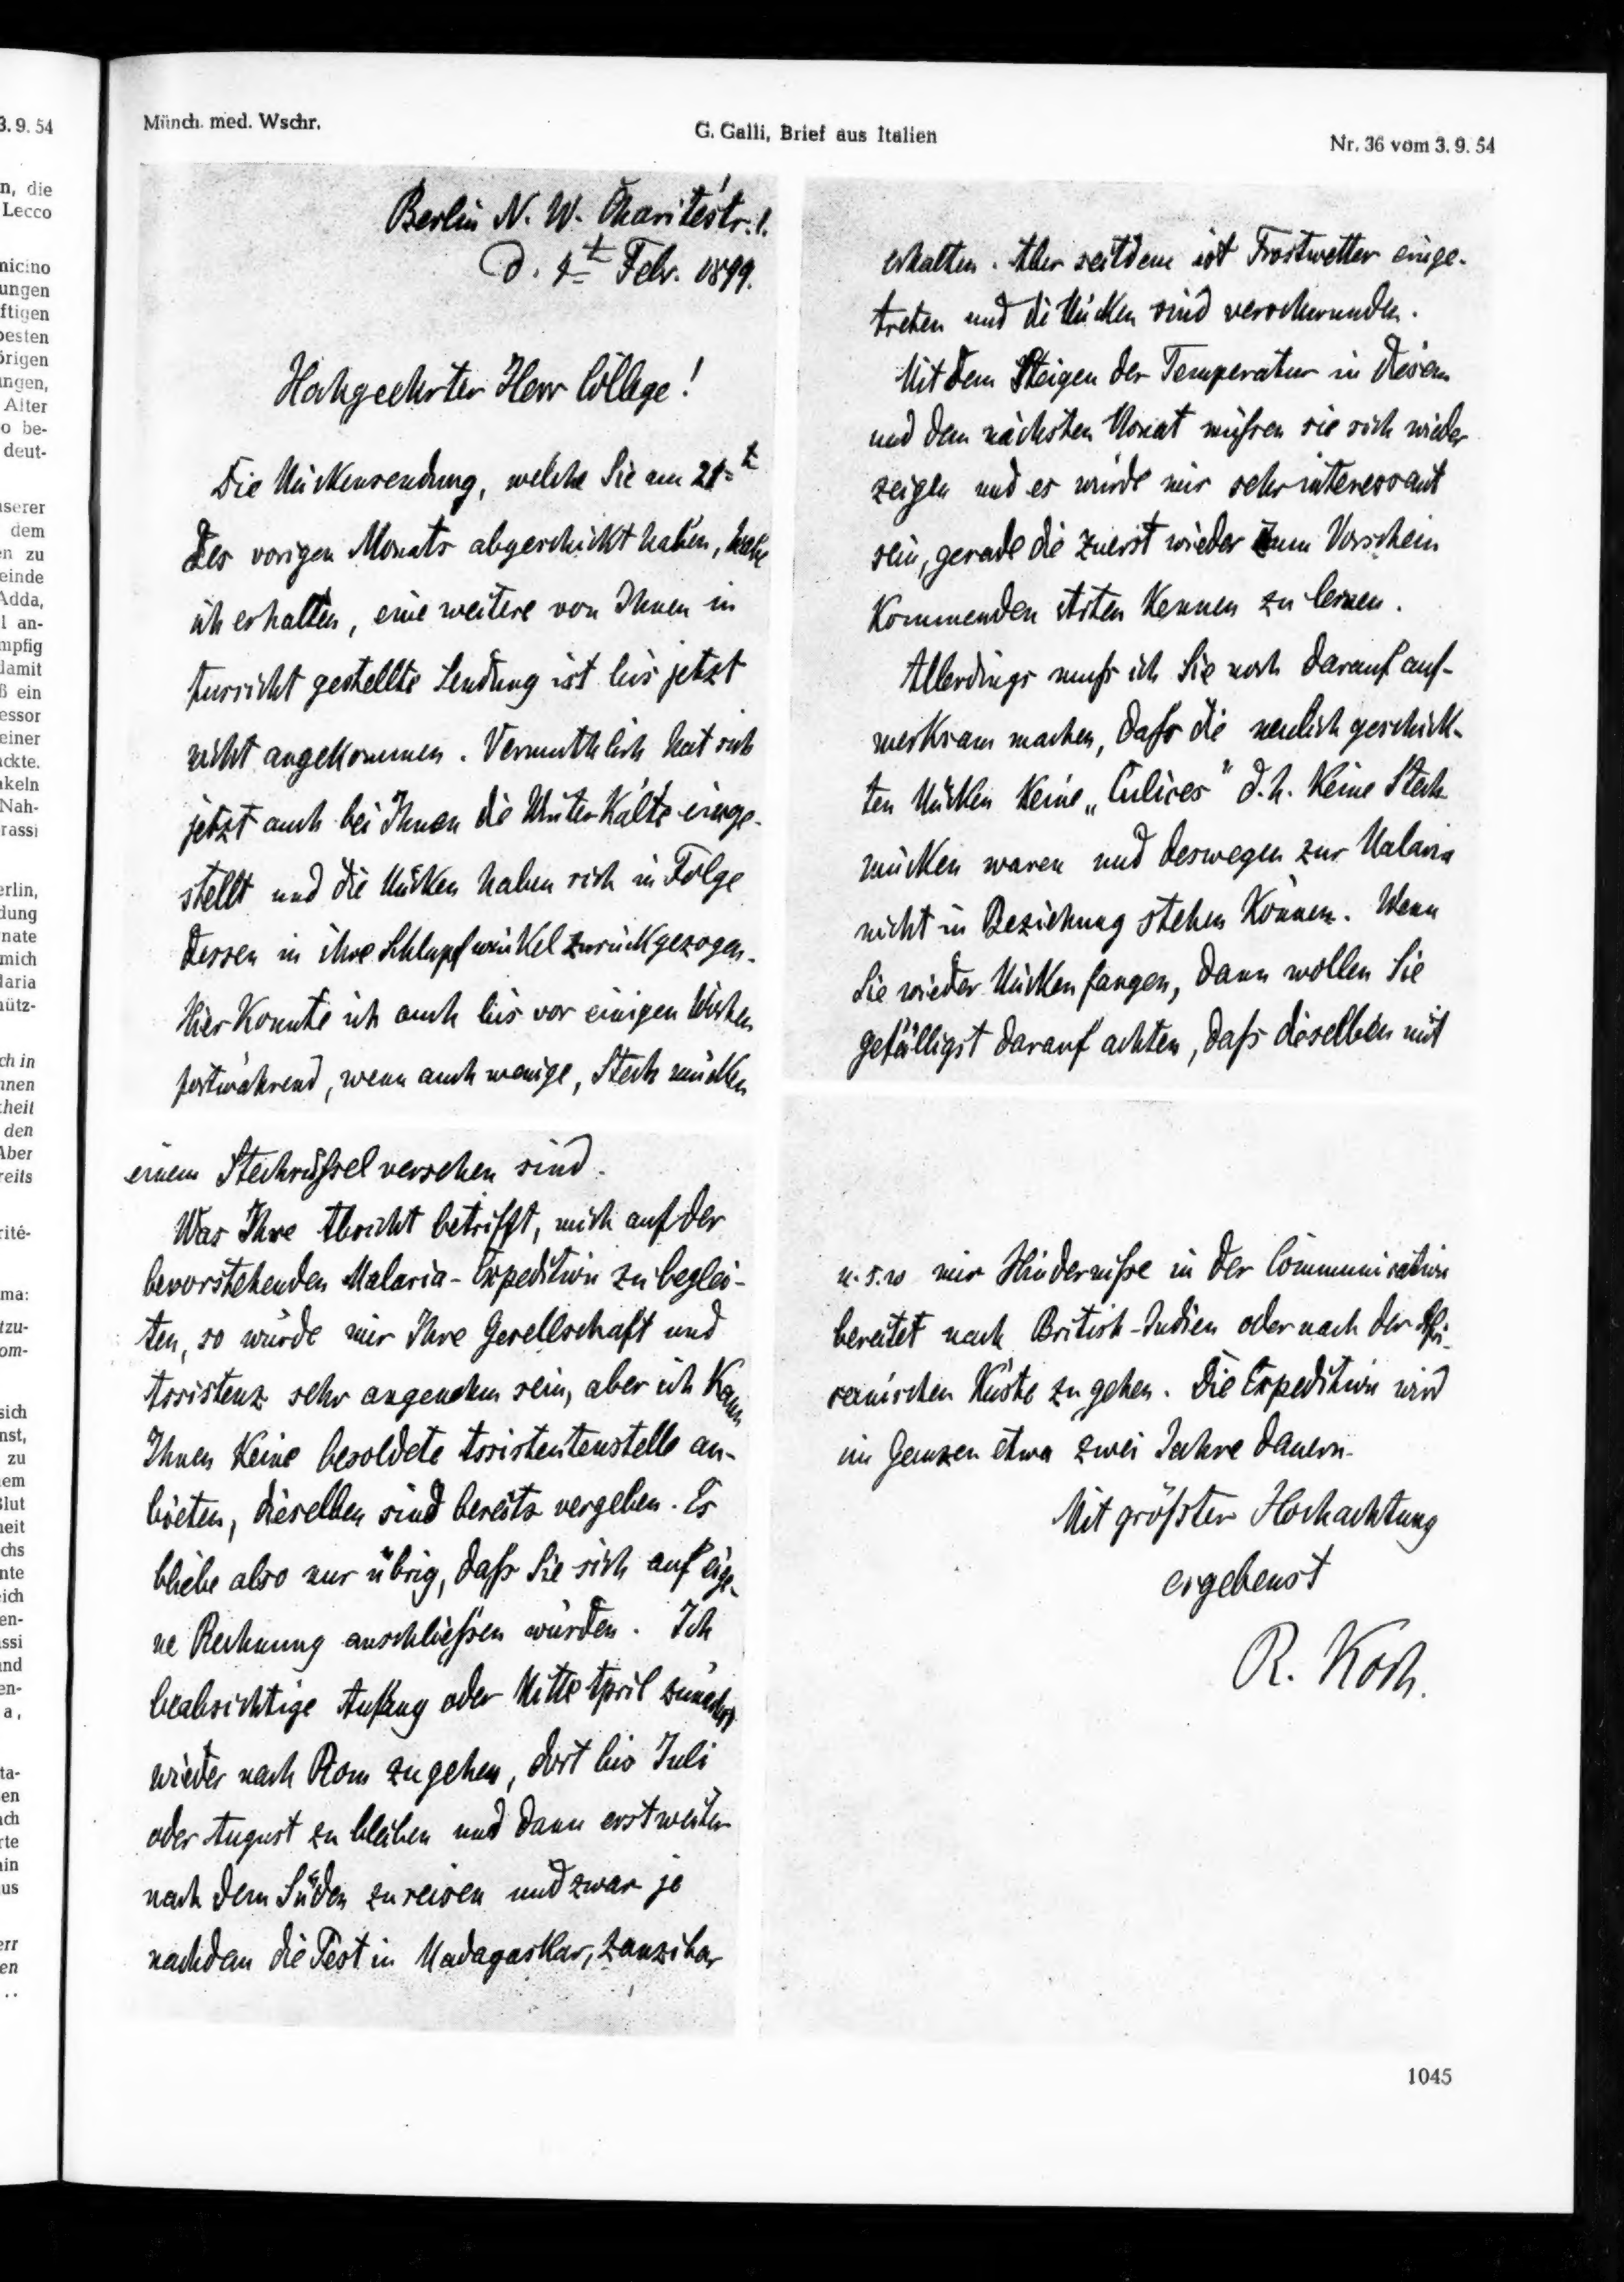 3. 9. 54
n, die
Lecco
nicino
ungen
ftigen
besten
örigen
ngen,
Alter
o be-
deut-
nserer
dem
en zu
einde
Adda,
l an-
mpfig
damit
ß ein
essor
einer
ackte.
nkeln
Nah-
rassi
erlin,
dung
nate
mich
laria
nütz-
ch in
nnen
kheit
den
Aber
reits
rité-
ma:
tzu-
om-
sich
nst,
zu
nem
Blut
neit
chs
nte
eich
en-
assi
und
en-
a,
ta-
en
ach
rte
ain
us
err
en
..
Münch. med. Wschr.
G. Galli, Brief aus Italien
Nr. 36 vom 3. 9. 54
Berlin N. W. Charitéstr. 1.
d. 4t Febr. 1899.
Hochgeehrter Herr College!
Die Mückensendung, welche Sie am 21t
des vorigen Monats abgeschickt haben, habe
ich erhalten, eine weitere von Ihnen in
Aussicht gestellte Sendung ist bis jetzt
nicht angekommen. Vermuthlich hat sich
jetzt auch bei Ihnen die Winterkälte einge-
stellt und die Mücken haben sich in Folge
dessen in ihre Schlupfwinkel zurückgezogen.
Hier konnte ich auch bis vor einigen Wochen
fortwährend, wenn auch wenige, Stechmücken
erhalten. Aber seitdem ist Frostwetter einge-
treten und die Mücken sind verschwunden.
Mit dem Steigen der Temperatur in diesem
und dem nächsten Monat müßen sie sich wieder
zeigen und es würde mir sehr interessant
sein, gerade die zuerst wieder zum Vorschein
kommenden Arten kennen zu lernen.
Allerdings muß ich Sie noch darauf auf-
merksam machen, daß die neulich geschick-
ten Mücken keine „Culices" d. h. keine Stech-
mücken waren und deswegen zur Malaria
nicht in Beziehung stehen können. Wenn
Sie wieder Mücken fangen, dann wollen Sie
gefälligst darauf achten, daß dieselben mit
einem Stechrüßel versehen sind.
Was Ihre Absicht betrifft, mich auf der
bevorstehenden Malaria-Expedition zu beglei-
ten, so würde mir Ihre Gesellschaft und
Assistenz sehr angenehm sein, aber ich kann
Ihnen keine besoldete Assistentenstelle an-
bieten, dieselben sind bereits vergeben. Es
bliebe also nur übrig, daß Sie sich auf eige-
ne Rechnung anschließen würden. Ich
beabsichtige Anfang oder Mitte April zunächst
wieder nach Rom zu gehen, dort bis Juli
oder August zu bleiben und dann erst weiter
nach dem Süden zu reisen und zwar je
nachdem die Pest in Madagaskar, Zanzibar
u. s. w mir Hinderniße in der Communication
bereitet nach British-Indien oder nach der Afri-
canischen Küste zu gehen. Die Expedition wird
im Ganzen etwa zwei Jahre dauern.
Mit größter Hochachtung
ergebenst
R. Koch.
1045